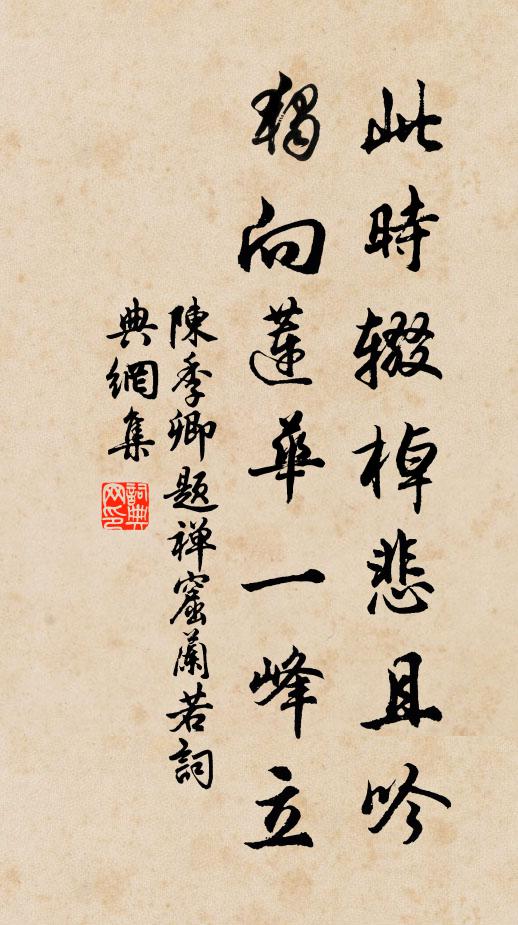 此時辍棹悲且吟
獨向蓮華一峰立
陳季卿題禅窟蘭若詞
典網集
詞典网印